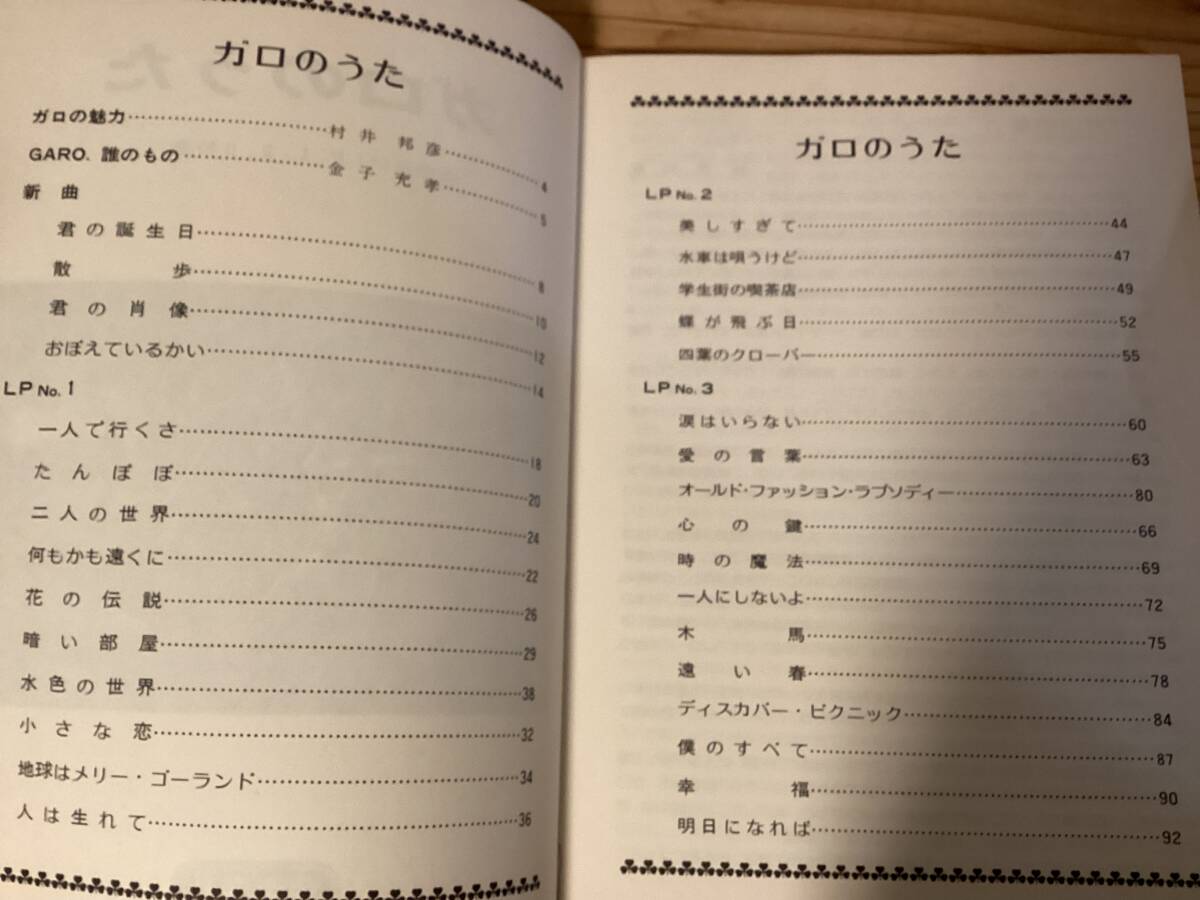 ガロのうた
ガロの魅力……………………村井邦彦…………4
GARO. 誰のもの………………金子充孝…………5
新曲
君の誕生日……………………8
散歩……………………10
君の肖像……………………12
おぼえているかい……………………14
LP No. 1
一人で行くさ……………………18
たんぽぽ……………………20
二人の世界……………………24
何もかも遠くに……………………22
花の伝説……………………26
暗い部屋……………………29
水色の世界……………………38
小さな恋……………………32
地球はメリー・ゴーランド……………………34
人は生れて……………………36
ガロのうた
LP No. 2
美しすぎて……………………44
水車は唄うけど……………………47
学生街の喫茶店……………………49
蝶が飛ぶ日……………………52
四葉のクローバー……………………55
LP No. 3
涙はいらない……………………60
愛の言葉……………………63
オールド・ファッション・ラブソディー……………………80
心の鍵……………………66
時の魔法……………………69
一人にしないよ……………………72
木馬……………………75
遠い春……………………78
ディスカバー・ピクニック……………………84
僕のすべて……………………87
幸福……………………90
明日になれば……………………92